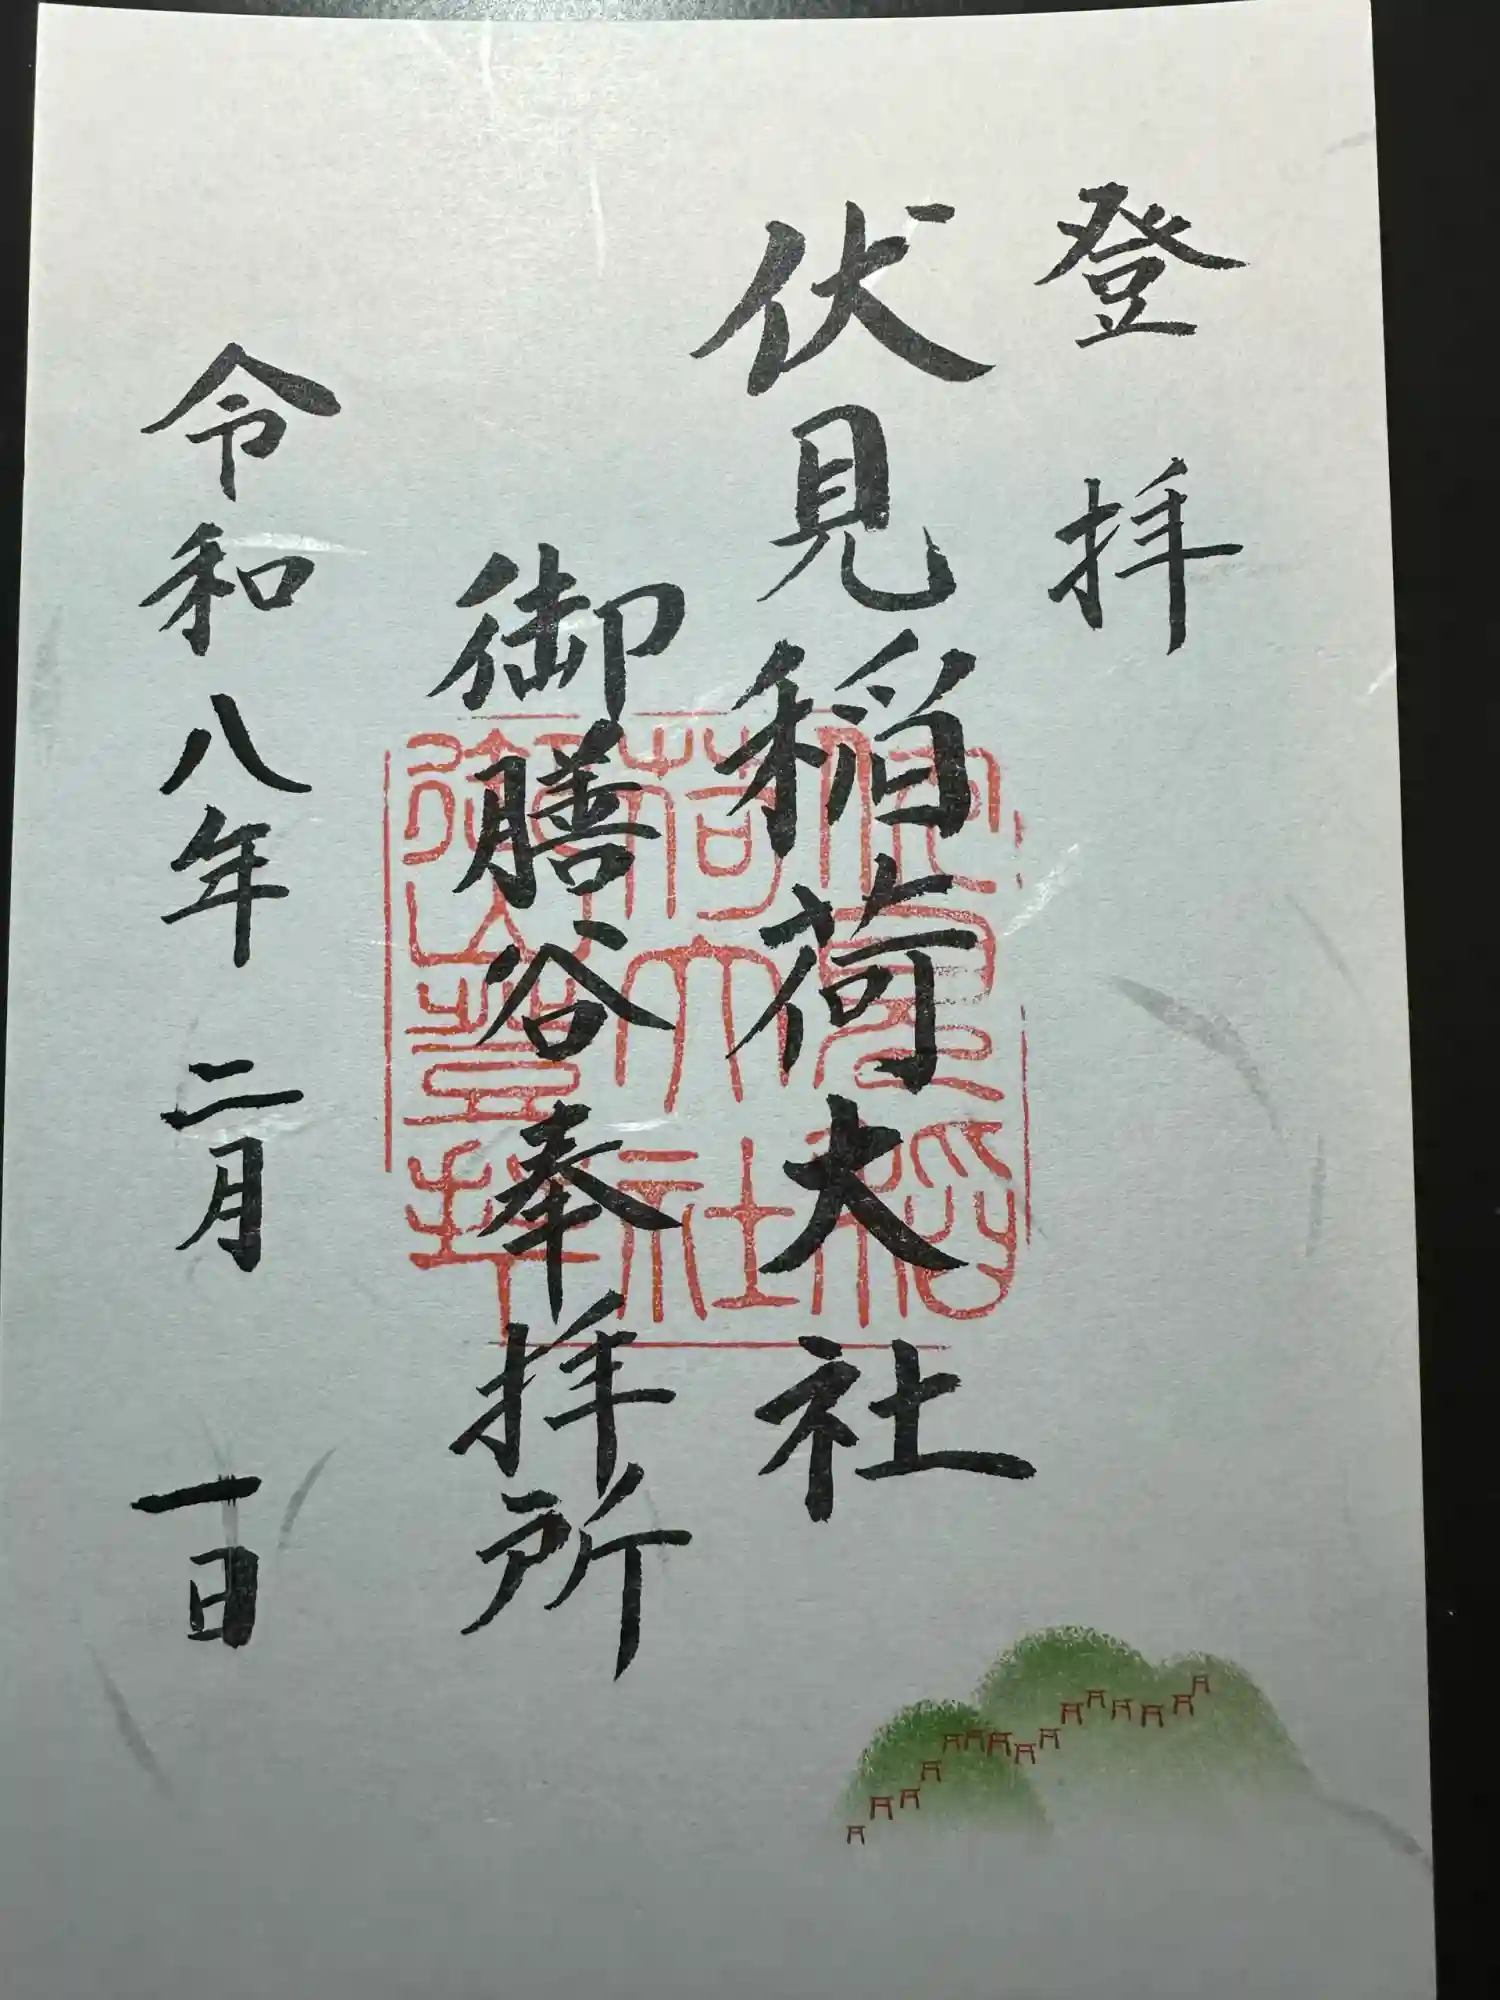 登拝
伏見稲荷大社
御膳谷奉拝所
令和八年二月一日
伏見稲
荷大社
御山登拝